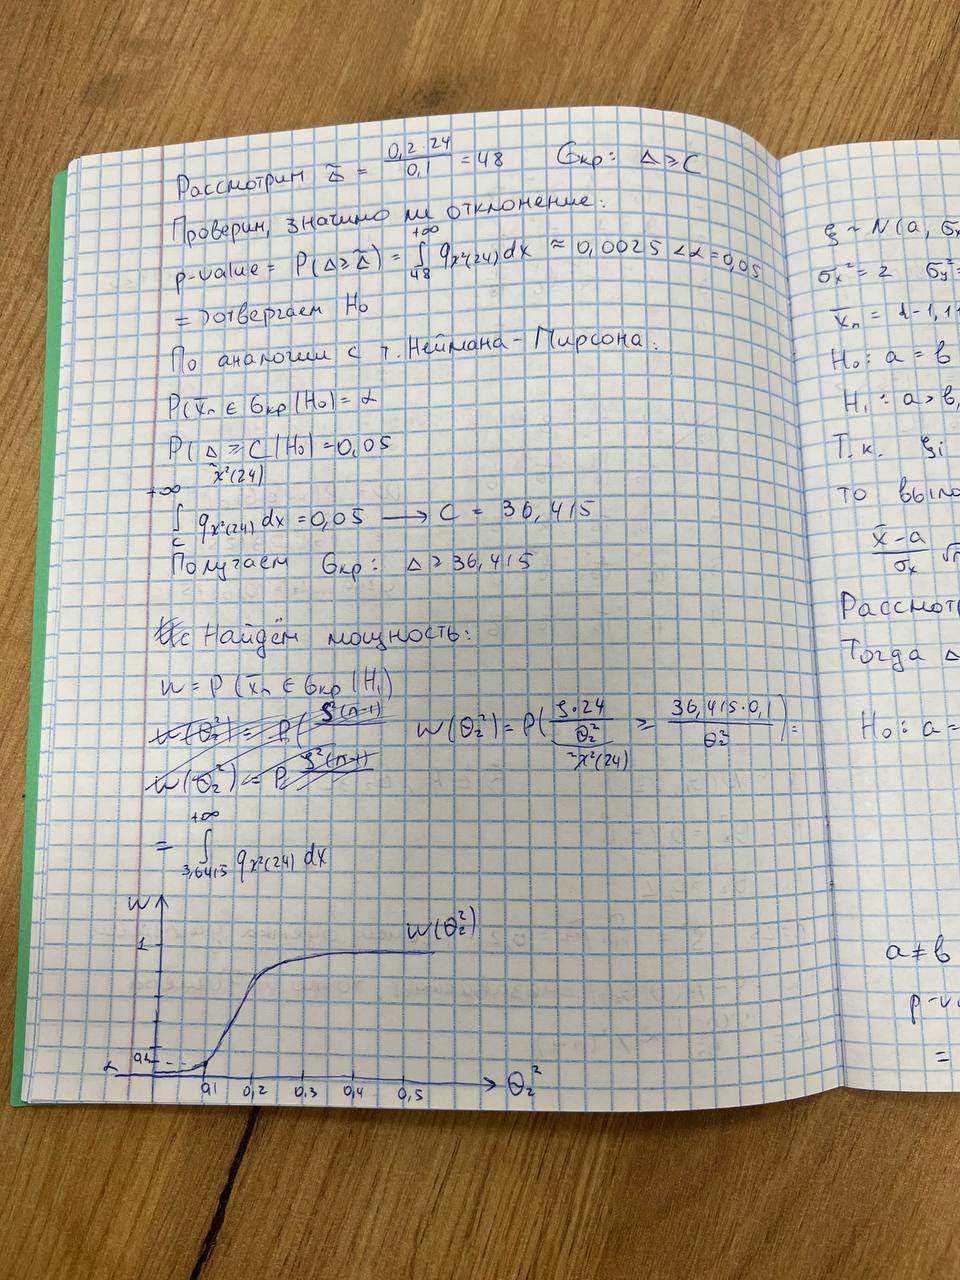 Рассмотрим Δ̃ = 0,2·24/0,1 = 48 Gкр: Δ ≥ C
Проверим, значимо ли отклонение:
p-value = P(Δ ≥ Δ̃) = ∫₄₈^{+∞} q_{χ²(24)} dx ≈ 0,0025 < α = 0,05
=> отвергаем H₀
По аналогии с т. Неймана-Пирсона:
P(x̄ₙ ∈ Gкр | H₀) = α
P(Δ ≥ C | H₀) = 0,05
~χ²(24)
∫_C^{+∞} q_{χ²(24)} dx = 0,05 → C = 36,415
Получаем Gкр: Δ ≥ 36,415
Найдём мощность:
W = P(x̄ₙ ∈ Gкр | H₁)
W(θ₂²) = P(S²(n-1)
W(θ₂²) = P S²(n-1)
W(θ₂²) = P(S·24/θ₂² ≥ 36,415·0,1/θ₂²) =
~χ²(24)
= ∫_{3,6415}^{+∞} q_{χ²(24)} dx
W
1
W(θ₂²)
α
0,1 0,2 0,3 0,4 0,5 θ₂²
ξ ~ N(a, σx
σx² = 2 σy² =
x̄ₙ =
H₀: a = b
H₁: a > b,
Т.к. ξi
то выпо
x̄-a/σx √
Рассмотр
Тогда Δ
H₀: a =
a ≠ b
p-v
=